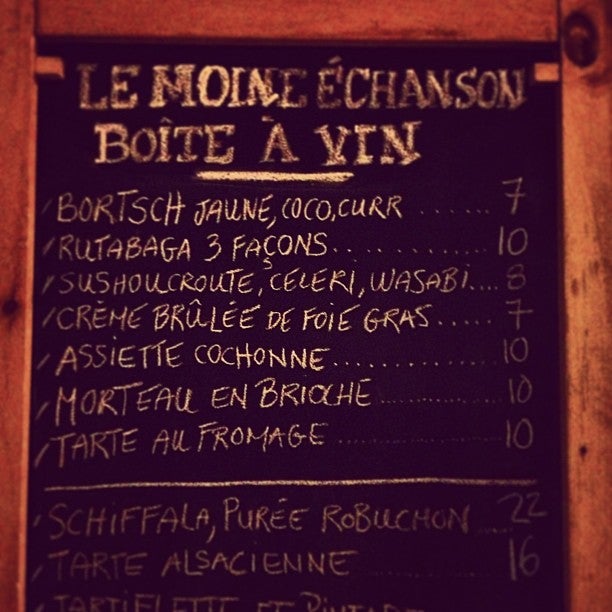 LE MOINE ÉCHANSON
BOÎTE À VIN
/BORTSCH JAUNE, COCO, CURR ....... 7
/RUTABAGA 3 FAÇONS............. 10
/SUSHOUCROUTE, CELERI, WASABI.... 8
/CRÈME BRÛLÉE DE FOIE GRAS..... 7
/ASSIETTE COCHONNE.............. 10
/MORTEAU EN BRIOCHE............ 10
/TARTE AU FROMAGE ................ 10
/SCHIFFALA, PURÉE ROBUCHON .... 22
/TARTE ALSACIENNE ............ 16
/TARTIFLETTE ET